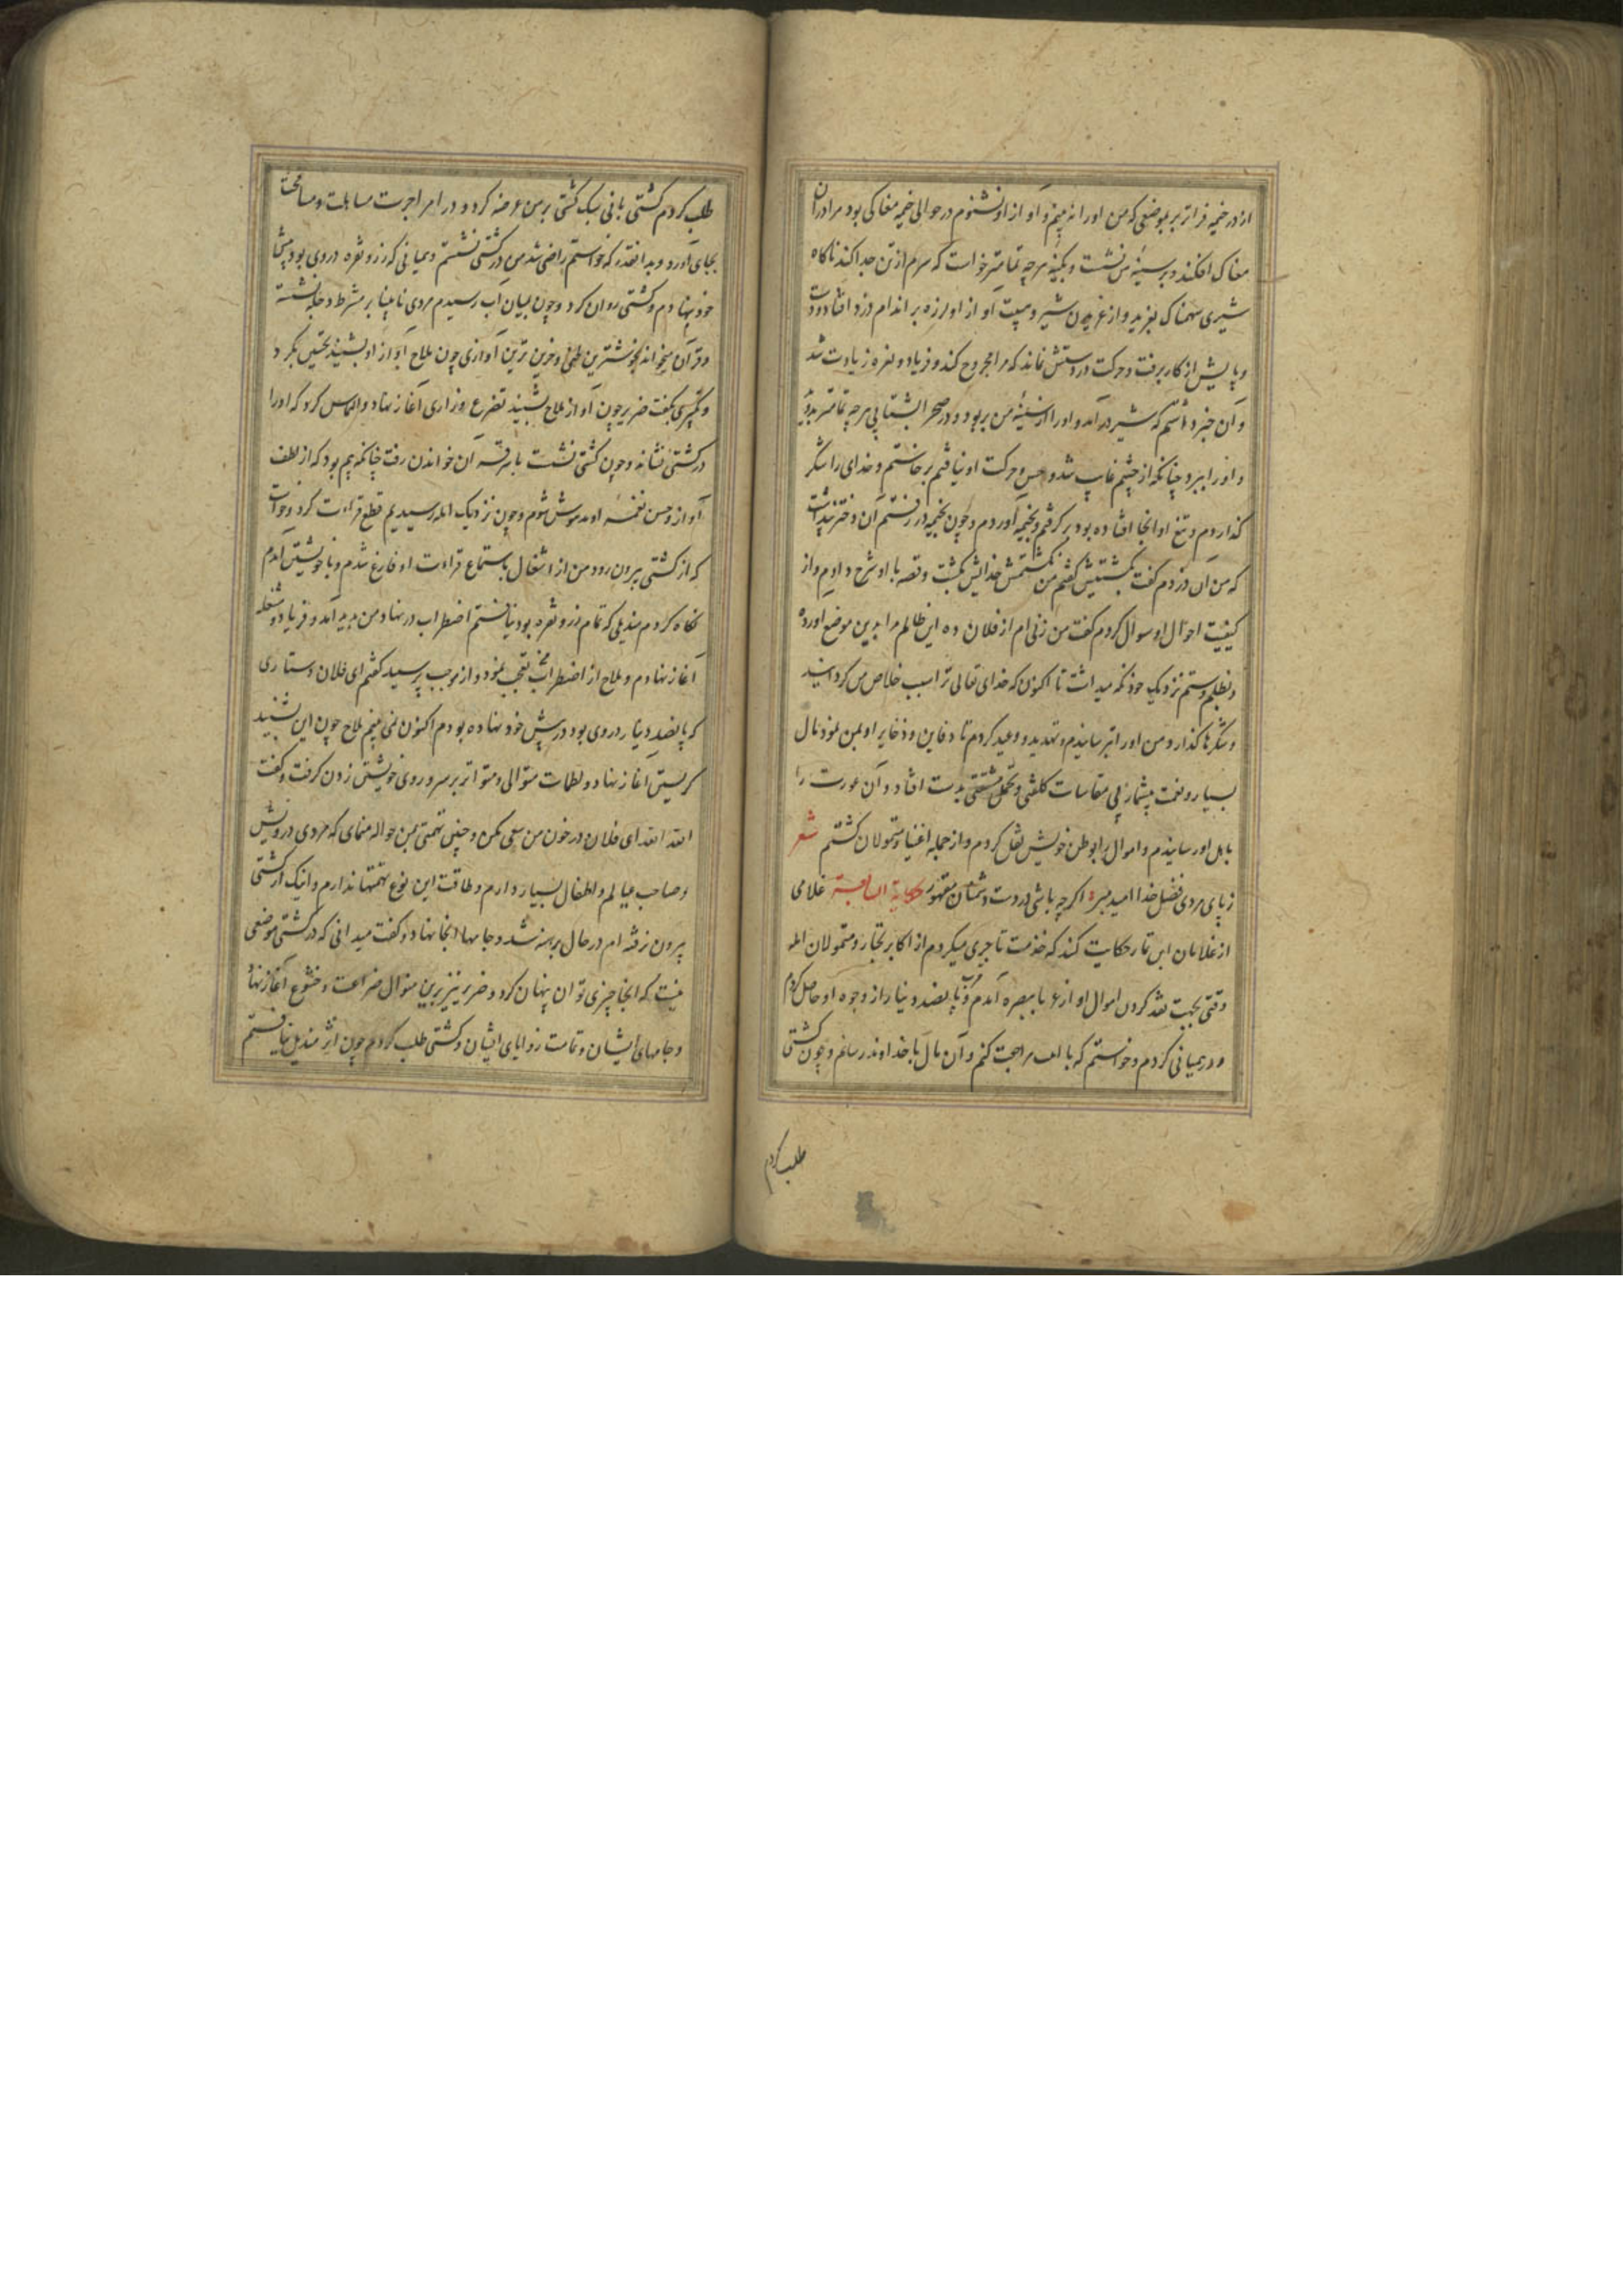 از در خیمه فراتر بر بموضعی که من او را نه بینم و آواز او نشنوم در حوالی خیمه مغاکی بود مرا در آن
مغاک افکند و بر سینه من نشست و بکینه هر چه تمامتر خواست که سرم از تن جدا کند ناکاه
شیری سهمناک بغرید و از غریدن شیر و هیبت آواز او لرزه بر اندام دزد افتاد و دست
و پایش از کار برفت و حرکت در دستش نماند که مرا مجروح کند و فریاد و نعره زیادت شد
و آن خبر داشتم که شیر در آمد و او را از سینه من بربود و در صحرا بشتابی هر چه تمامتر بدوید
و او را ببرد چنانکه از چشم غایب شد و حس و حرکت او نیافتم برخاستم و خدای را شکر
گذاردم و تیغ او آنجا افتاده بود بر کرفتم و بخیمه آوردم و چون بخیمه در رفتم آن دختر پنداشت
که من آن دزدم گفت بکشتیش گفتم من نکشتمش خدایش بکشت و قصه با او شرح دادم و از
کیفیت احوال او سوال کردم گفت من زنی ام از فلان ده این ظالم مرا بدین موضع آورده
و بظلم و ستم نزدیک خود نکه میداشت تا اکنون که خدای تعالی ترا سبب خلاص من کردانید
و شکرها گذارد و من او را بترسانیدم و تهدید و وعید کردم تا دفاین و ذخایر او بمن نمود مال
بسیار و نعمت بیشمار بی مقاسات کلفتی و تحمل مشقتی بدست افتاد و آن عورت را
باهل او رسانیدم و اموال را بوطن خویش نقل کردم و از جمله اغنیا و متمولان کشتم شعر
ز پای مردی فضل خدا امید مبر اکر چه باشی در دست دشمنان مقهور حکایة السابعة غلامی
از غلامان ابن تمار حکایت کند که خدمت تاجری میکردم از اکابر تجار و متمولان ابله
وقتی بجهت نقد کردن اموال او از غربا ببصره آمدم و پانصد دینار از وجوه او حاصل کردم
و در همیانی کردم و خواستم که با ابله مراجعت کنم و آن مال با خداوند رسانم و چون کشتی
طلب کردم
طلب کردم کشتی بانی سبک کشتی بر من عرضه کرد و در امر اجرت مساهلت و مسامحت
بجای آورد و بدانقدر که خواستم راضی شد من در کشتی نشستم و همیانی که زر و نقره در وی بود پیش
خود بنهادم و کشتی روان کرد و چون بمیان آب رسیدم مردی نابینا بر شط دجله نشسته
و قرآن میخواند بخوشترین لحنی و حزین ترین آوازی چون ملاح آواز او بشنید تحسین بکرد
و تکبیری بگفت ضریر چون آواز ملاح بشنید تضرع و زاری آغاز نهاد و التماس کرد که او را
در کشتی نشاند و چون کشتی نشست با سر قرآن خواندن رفت چنانکه بیم بود که از لطف
آواز و حسن نغمه او مدهوش شوم و چون نزدیک ابله رسیدیم قطع قراءت کرد و خواست
که از کشتی بیرون رود من از اشتغال باستماع قراءت او فارغ شدم و با خویشتن آمدم
نکاه کردم مندیلی که تمام زر و نقره بود نیافتم اضطراب در نهاد من پدید آمد و فریاد و مشغله
آغاز نهادم و ملاح از اضطراب من تعجب نمود و از موجب پرسید گفتم ای فلان دستاری
که پانصد دینار در وی بود در پیش خود نهاده بودم اکنون نمی بینم ملاح چون این بشنید
کریستن آغاز نهاد و لطمات متوالی و متواتر بر سر و روی خویشتن زدن گرفت و گفت
الله الله ای فلان در خون من سعی مکن و چنین تهمتی بمن حواله منمای که مردی درویش
و صاحب عیالم و اطفال بسیار دارم و طاقت این نوع تهمتها ندارم و اینک از کشتی
بیرون نرفته ام در حال برهنه شد و جامها آنجا نهاد و گفت میدانی که در کشتی موضعی
نیست که آنجا چیزی توان پنهان کرد و ضریر نیز برین منوال ضراعت و خشوع آغاز نهاد
و جامهای ایشان و تمامت زوایای ایشان و کشتی طلب کردم چون اثر مندیل نیافتم